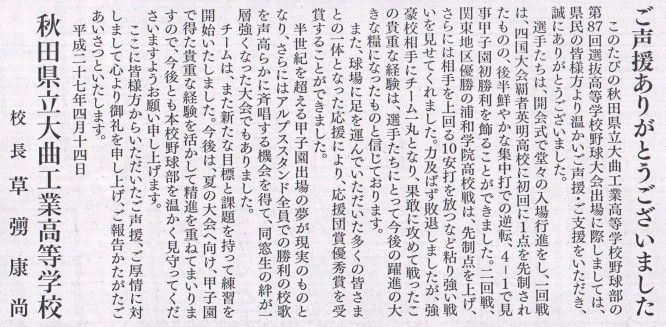 ご声援ありがとうございました
このたびの秋田県立大曲工業高等学校野球部の
第87回選抜高等学校野球大会出場に際しましては、
県民の皆様方より温かいご声援・ご支援をいただき、
誠にありがとうございました。
選手たちは、開会式で堂々の入場行進をし、一回戦
は、四国大会覇者英明高校に初回に1点を先制され
たものの、後半鮮やかな集中打での逆転、4−1で見
事甲子園初勝利を飾ることができました。二回戦、
関東地区優勝の浦和学院高校戦は、先制点を上げ、
さらには相手を上回る10安打を放つなど粘り強い戦
いを見せてくれました。力及ばず敗退しましたが、強
豪校相手にチーム一丸となり、果敢に攻めて戦ったこ
の貴重な経験は、選手たちにとって今後の躍進の大
きな糧になったものと信じております。
また、球場に足を運んでいただいた多くの皆さま
との一体となった応援により、応援団賞優秀賞を受
賞することができました。
半世紀を超える甲子園出場の夢が現実のものと
なり、さらにはアルプススタンド全員での勝利の校歌
を声高らかに斉唱する機会を得て、同窓生の絆が一
層強くなった大会でもありました。
チームは、また新たな目標と課題を持って練習を
開始いたしました。今後は、夏の大会へ向け、甲子園
で得た貴重な経験を活かして精進を重ねてまいりま
すので、今後とも本校野球部を温かく見守ってくだ
さいますようお願い申し上げます。
ここに皆様方からいただいたご声援、ご厚情に対
しまして心より御礼を申し上げ、ご報告かたがたご
あいさつといたします。
平成二十七年四月十四日
秋田県立大曲工業高等学校
校長 草彅康尚